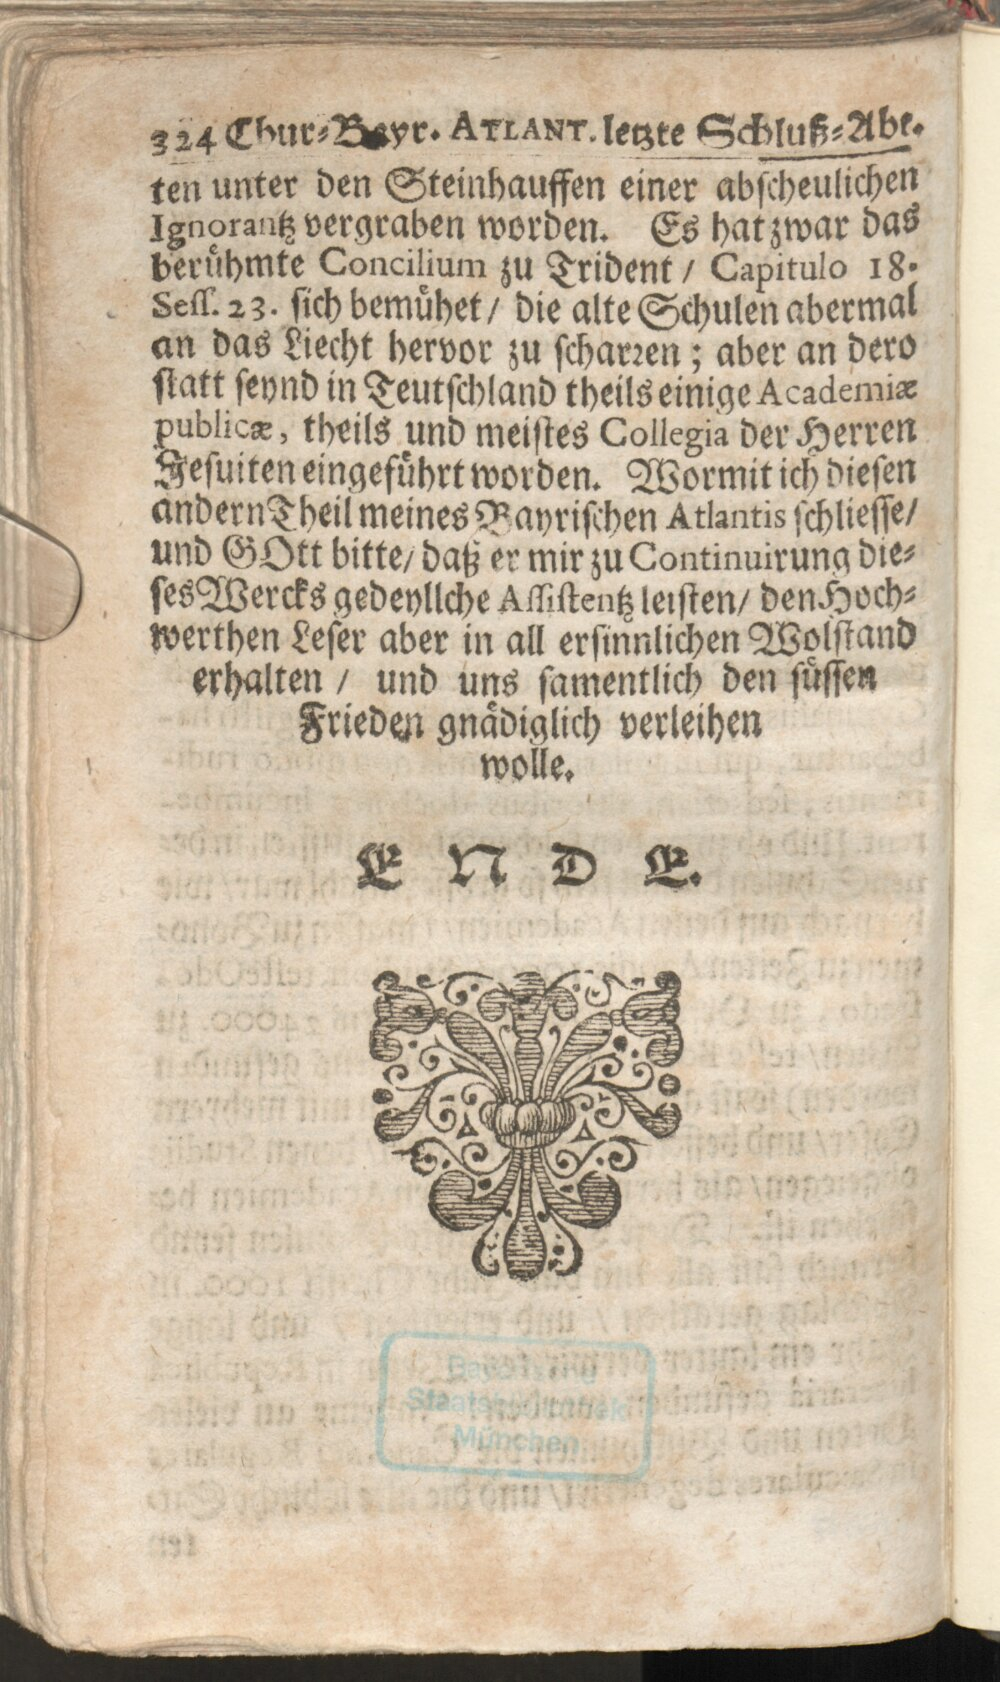 324 Chur⸗Bayr. ATLANT. letzte Schluß⸗Abt.
ten unter den Steinhauffen einer abscheulichen
Ignorantz vergraben worden. Es hat zwar das
berühmte Concilium zu Trident / Capitulo 18.
Sess. 23. sich bemühet / die alte Schulen abermal
an das Liecht hervor zu scharren ; aber an dero
statt seynd in Teutschland theils einige Academiæ
publicæ, theils und meistes Collegia der Herren
Jesuiten eingeführt worden. Wormit ich diesen
andern Theil meines Bayrischen Atlantis schliesse/
und GOtt bitte/ daß er mir zu Continuirung die⸗
ses Wercks gedeyllche Assistentz leisten/ den Hoch⸗
werthen Leser aber in all ersinnlichen Wolstand
erhalten / und uns samentlich den süssen
Frieden gnädiglich verleihen
wolle.
E N D E.
Bayerische
Staatsbibliothek
München